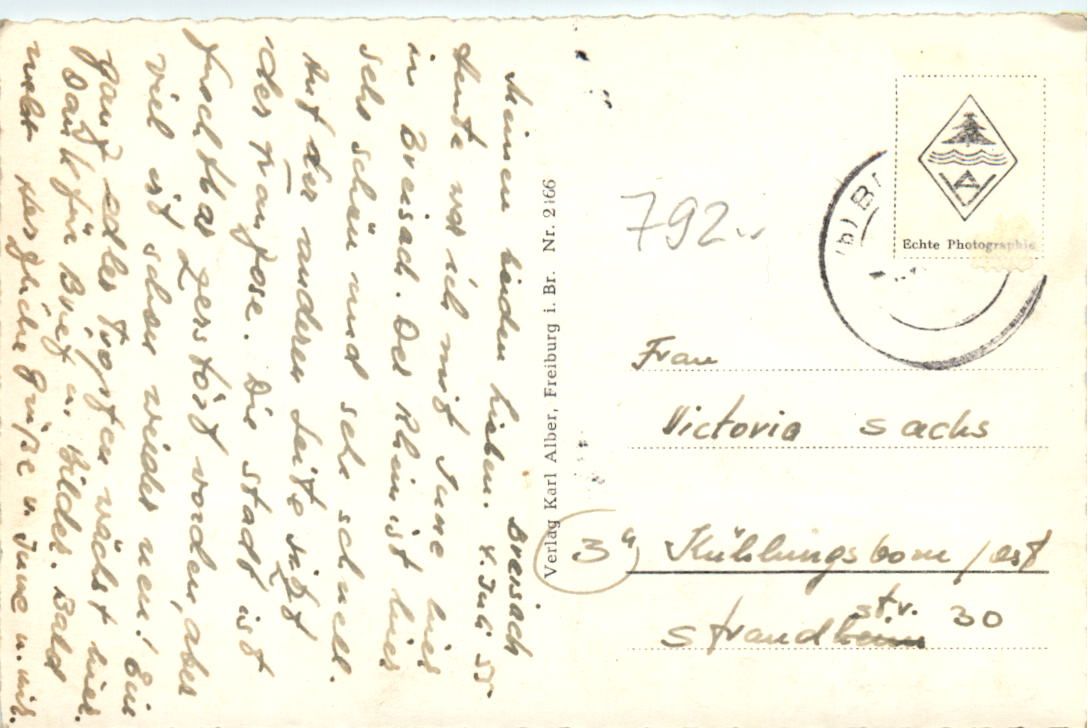 Breisach
4. Juli 55.
Meinen beiden Lieben.
Heute war ich mit June hier
in Breisach. Der Rhein ist hier
sehr schön und sehr schnell.
Auf der anderen Seite sitzt
der Franzose. Die Stadt ist
furchtbar zerstört worden, aber
viel ist schon wieder neu! Ein
ganz edler Tropfen wächst hier.
Dank für Brief u. Bilder. Bald
mehr herzliche Grüße v. June u. mir.
Verlag Karl Alber, Freiburg i. Br. Nr. 2166
792
(b) B
Echte Photographie
Frau
Victoria Sachs
3a Kühlungsborn / ost
str. 30
Strand